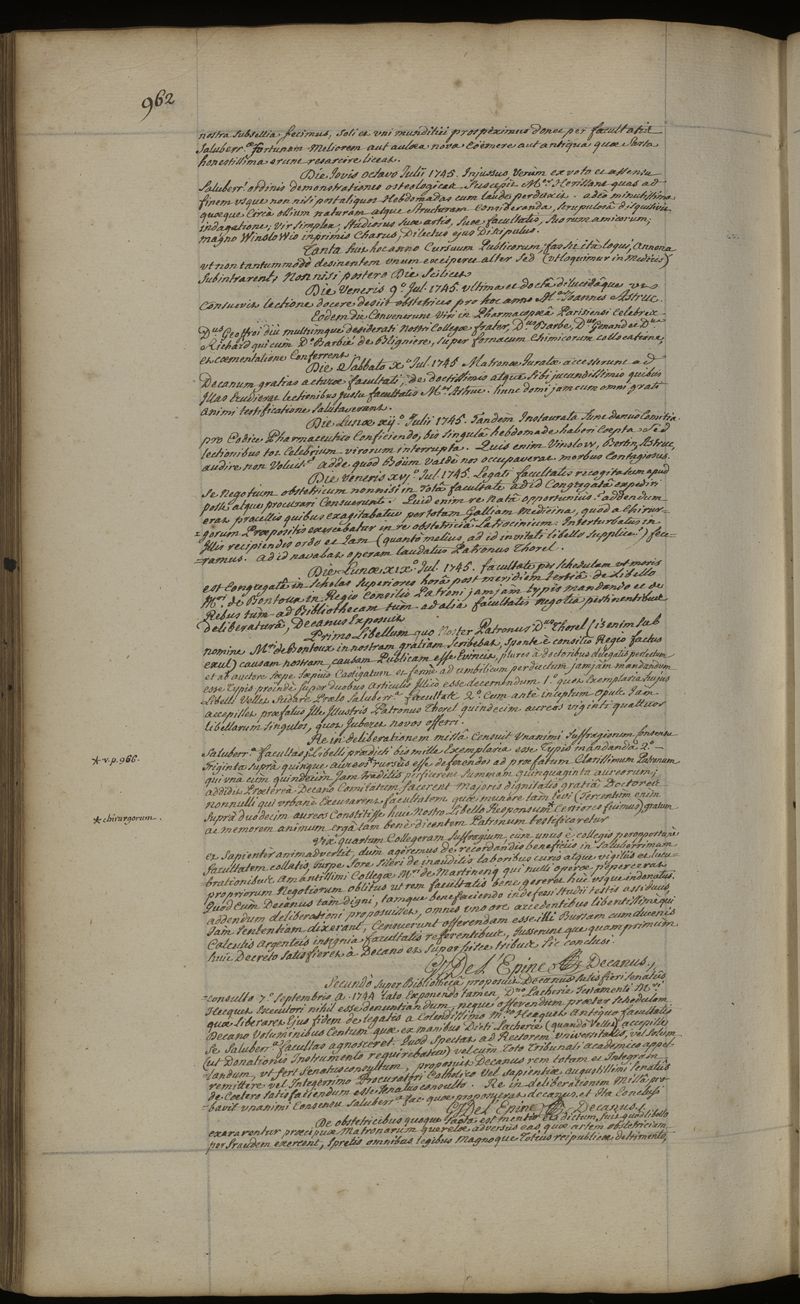 962
nostra subsellia fecimus, soli et uni munditiei prospeximus donec per facultatis
Saluberr.ae fortunam meliorem aut aulaea nova coemere aut antiqua quae sarta
honestissima erunt resarcire liceat.
Die Jovis octavo Julii 1745. Injussus Verum ex voto et assensu
Saluberr.i ordinis demonstrationes osteologicas suscepit M.er Herissant quas ad
finem usque non nisi post aliquot Hebdomadas cum laude perduxit. adeo minutissima
quaeque circa ossium naturam atque structuram consideranda, scrupulosa disquisivit
indagatione, vir simplex, studiosus suae artis, suae facultatis, suorum amicorum;
magno Winslowio inprimis charus, Dilectus ejus Discipulus.
Tanta fuit hoc anno Cursuum Publicorum, fas sit ita loqui, Annona
ut non tantummodo desinentem unum exciperet alter sed (ut loquimur in Medicis)
Subintrarent, Non nisi postero Die Scilicet
Die Veneris 9.o Jul. 1745. ultima et docta dilucidaque ut
Consuevit lectione docere desiit obstetrices pro hoc anno M.er Joannes Astruc.
Eodem die Convenerunt Viri in Pharmacopoea Parisiensi Celebres
D.nus Geoffroi diu multumque desiderati Nostri Collegae frater, D.nus Barbe, D.nus Genand et D.nus
Richard qui cum D.o Barbié de Blignieres, super fornacum Chimicorum collocatione,
et coementatione Conferrent.
Die Sabbati X.a Jul. 1745 Matronae Juratae accesserunt ad
Decanum, gratias acturae facultati, de doctissimis atque sibi jucundissimis quibus
Illas Erudierat lectionibus jussu facultatis M.er Astruc. hunc domi jam cum omni grati
animi testificatione salutaverant.
Die Lunae xij.o Julii 1745. Tandem Instaurata sunt denuo Comitia
pro Codice Pharmaceutico Conficiendo, bis singula hebdomade haberi Coepta sed
lectionibus tot Celebrium virorum interrupta. Quis enim Vinslow, Bertin, Astruc,
audire non Voluit? adde quod Boüm valde nos occupaverat morbus Contagiosus.
Die Veneris xvj.o Jul. 1745. Legati facultatis recogitatum apud
se Negotium obstetricum non nisi in Tota facultate ad id Congregata expediri
posse, atque procurari Censuerunt. Quid enim re Nata opportunius? addendum
erat procellis quibus exagitabatur per totam Galliam Medicina, quod a Chirur-
-gorum Praepositis exercebatur in re obstetricia Latrocinium. Interturbatus in
Illis recipiendis ordo et Jam (quanto melius, ad id invitati libello supplice!) fece-
=ramus. ad id navabat operam laudatus Patronus Thorel.
Die Lunae xix.o Jul. 1745. facultas per Schedulam ut moris
est Congregata in Scholas Superiores hora post meridiem tertia de Libello
M.ri de Bontoux in Regis Consiliis Patroni jam jam typis mandando et de
Rebus tum ad Bibliothecam tum ad alia facultatis negotia pertinentibus
deliberatura, Decanus Exposuit
Primo Libellum quo Noster Patronus D.nus Thorel (is enim sub
nomine M.ri de Bontoux in nostram gratiam scribebat, sponte è consiliis Regis factus
exul) causam nostram, causam Publicam esse Evincit, plures à doctoribus delegatis perlectum
et ab auctore saepe saepius Castigatum et ferme ad umbilicum perductum jamjam mandandum
esse Typis proinde super duobus Articulis Illico esse decernendum 1.o quot Exemplaria hujus
Libelli Vellet sudare Praelo Saluberr.a facultas 2.o Cum ante inceptum opus Jam
accepisset praefatus Ille Illustris Patronus Thorel quindecim aureos viginti quattuor
libellarum singulos, quot Juberet novos offerri.
Re in deliberationem missa Censuit Unanimi Suffragiorum Consensu
Saluberr.a facultas 1.o Libelli praedicti bis mille Exemplaria esse Typis mandanda 2.o
Triginta supra quinque aureos* rursus esse deferendos ad praefatum Clarissimum Patronum
qui una cum quindecim Jam traditis perficerent Summam quinquaginta aureorum;
addidit Praeterea Decano Comitatum facerent Majoris dignitatis gratiâ Doctores
nonnulli qui urbane Excusarent facultatem quae munere tam levi (Tercentum enim
supra duodecim aureos Constitisse huic Nostro Libello Responsum* Certiores fuimus) gratum
ac memorem animum erga tam benè dicentem Patronum testificaretur
*v. p. 966.
*chirurgorum.
Vix quartum Collegerant suffragium, cum unus è collegio peropportune
et Sapienter animadvertit, dum ageremus de recordandis beneficiis in Saluberrimam
facultatem collatis, turpe fore Sileri de inauditis laboribus curis atque vigiliis et lucu-
brationibus Amantissimi Collegae M.ri de Martinenq qui nulli operae pepercerat
propriorum Negotiorum oblitus ut rem facultatis benè gereret huc usque indonatus.
Quod Cum Decanus tam digni, tamque benefaciendo indefessi Studii testis assiduus,
addendum deliberationi proposuisset, omnes uno ore accedentibus libentissime qui
Jam sententiam dixerant, Censuerunt offerendam esse illi Bursam cum ducenis
Calculis Argenteis insignia facultatis referentibus, Jusserunt que quamprimum
huic Decreto satisfieret à Decano et super his tribus sic conclusi
G. J. De L'Epine Decanus,
Secundo super Bibliotheca proposuit Decanus satisfieri Senatus
consulto 7.o Septembris A. 1744 lato Exponendo tamen D.no Lacherie Testamenti M.ri
Hecquet Executori nihil esse denuntiandum, neque offerendum praeter Schedulam
quae liberaret Ejus fidem de legatis à Colendissimo M.ro Hecquet Antiquo facultatis
Decano Voluminibus Centum quae ex manibus Dicti Lacherie (quando Vellet) accepisse
Se Saluberr.a facultas agnosceret. Quod spectat ad Rectorem Universitatis, vel solum
(ut Donationis Instrumento requirebatur) vel cum Toto Tribunali academico appel-
landum, ut fert Senatusconsultum, proposuit Decanus rem totam et Integram
remittere vel Integerrimo Procuratori Catholico vel sapientiae augustissimi Senatûs
de Coetero satisfaciendum esse Senatus consulto. Re in deliberationem Missa pro-
bavit unanimi Consensu Saluberr.a fac. quae proposuerat Decanus, et ita Conclusi
G. J. De L'Epine Decanus.
De obstetricibus quoque facta est mentio et dictum, suis quo libellis
exararentur praecipuae Matronarum querelae adversus eas, quae artem obstetriciam
per fraudem exercent, spretis omnibus legibus magnoque Totius reipublicae detrimento,